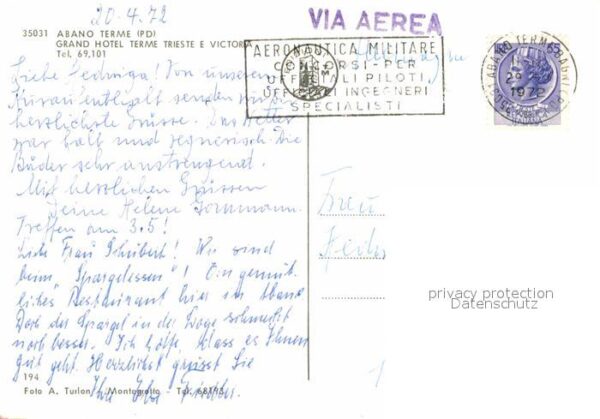 20-4.72
VIA AEREA
35031 ABANO TERME (PD)
GRAND HOTEL TERME TRIESTE E VICTORIA
Tel, 69,101
AERONAUTICA MILITARE
CONCORSI-PER
UFFICIALI PILOTI
UFFICIALI INGEGNERI
SPECIALISTI
65
ABANO TERME
1972
Liebe Hedwiga! Von unserem
Kuraufenthalt senden wir
herzlichste Grüsse. Das Wetter
war kalt und regnerisch. Die
Bäder sehr anstrengend.
Mit herzlichen Grüssen
Deine Helene
Treffen am 3.5!
Liebe Frau Schubert! Wir sind
beim "Spargelessen"! Ein gemüt-
liches Restaurant hier in Abano
Doch der Spargel in der Loge schmeckt
noch besser. Ich hoffe, dass es Ihnen
gut geht. Herzlichst grüsst Sie
Ihre
Frau
privacy protection
Datenschutz
194
Foto A. Turlon - Montegrotto - Tel. 68193